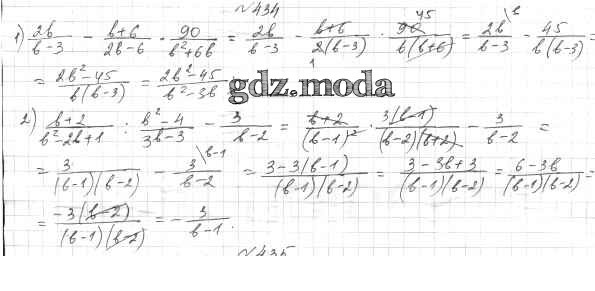 №434
1) 2b/(b-3) - (b+6)/(2b-6) · 90/(b²+6b) = 2b/(b-3) - (b+6)/(2(b-3)) · 90 45/(b(b+6)) = 2b\b/(b-3) - 45/(b(b-3)) =
= (2b²-45)/(b(b-3)) = (2b²-45)/(b²-3b)
gdz.moda
2) (b+2)/(b²-2b+1) : (b²-4)/(3b-3) - 3/(b-2) = (b+2)/(b-1)² · 3(b-1)/((b-2)(b+2)) - 3/(b-2) =
= 3/((b-1)(b-2)) - 3\b-1/(b-2) = (3-3(b-1))/((b-1)(b-2)) = (3-3b+3)/((b-1)(b-2)) = (6-3b)/((b-1)(b-2)) =
= -3(b-2)/((b-1)(b-2)) = - 3/(b-1).
№435